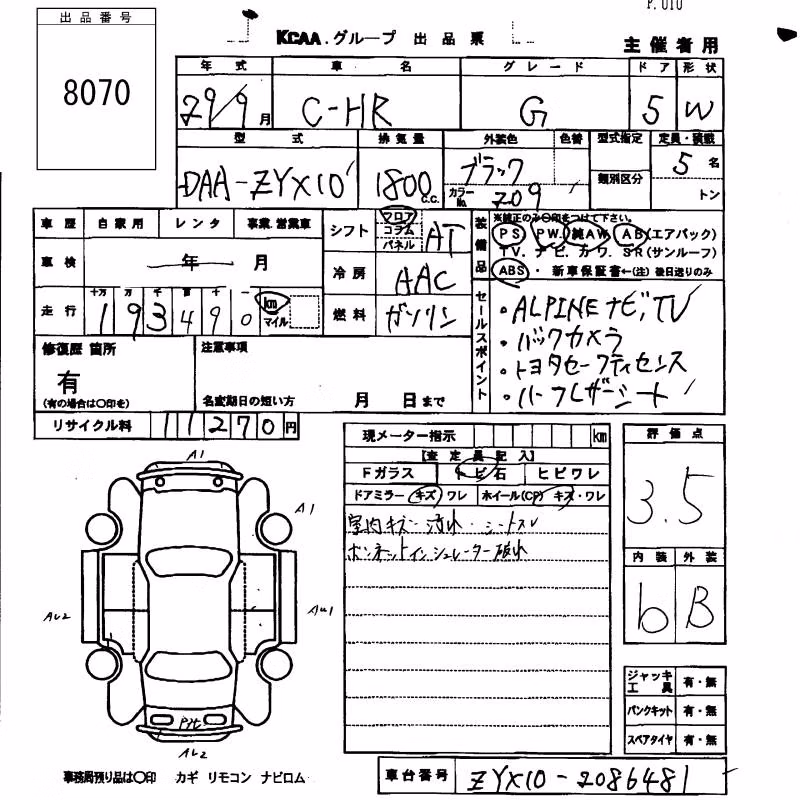 P.010
出品番号
8070
KCAA.グループ 出品票
主催者用
年式 車名 グレード ドア 形状
29/9月 C-HR G 5 W
型式 排気量 外装色 色替 型式指定 定員・積載
DAA-ZYX10 1800c.c. ブラック カラーNo. 209 類別区分 5名
トン
車歴 自家用 レンタ 事業.営業車
車検 年 月
走行 十万 万 千 百 十 一
193490 km マイル
シフト フロア コラム パネル AT
冷房 AAC
燃料 ガソリン
装備品
※純正のみ○印をつけて下さい。
PS PW. 純AW. AB(エアバック)
TV. ナビ. カワ. SR(サンルーフ)
ABS ・ 新車保証書←(注) 後日送りのみ
セールスポイント
・ALPINEナビ,TV
・バックカメラ
・トヨタセーフティセンス
・ハーフレザーシート
修復歴 箇所
有
(有の場合は○印を)
注意事項
名変期日の短い方 月 日まで
リサイクル料 11270円
現メーター指示 km
【査定員記入】
Fガラス トビ石 ヒビワレ
ドアミラー キズ ワレ ホイール(CP) キズ・ワレ
室内キズ・汚れ・シートスレ
ボンネットインシュレーター破れ
評価点
3.5
内装 外装
b B
ジャッキ工具 有・無
パンクキット 有・無
スペアタイヤ 有・無
A1
A1
AU2
AU1
AU2
事務局預り品は○印 カギ リモコン ナビロム
車台番号 ZYX10-2086481